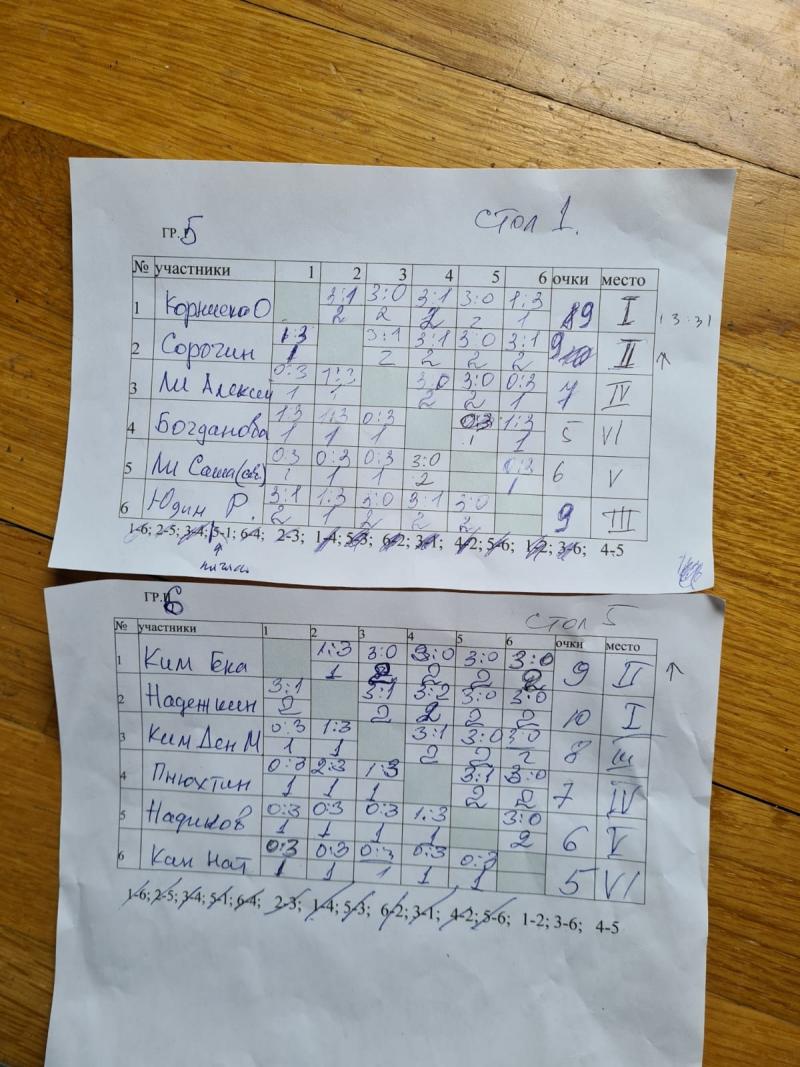 ГР. 5 стол 1.
№ участники 1 2 3 4 5 6 очки место
3:1 3:0 3:1 3:0 1:3
1 Корниенко О 2 2 2 2 1 9 I
1:3 3:1 3:1 3:0 3:1 9
2 Сорочин 1 2 2 2 2 II ↑
0:3 1:3 3:0 3:0 0:3
3 Ли Алексей 1 1 2 2 1 7 IV
1:3 1:3 0:3 0:3 1:3
4 Богданова 1 1 1 1 1 5 VI
0:3 0:3 0:3 3:0
5 Ли Саша 1 1 1 2 1 6 V
3:1 1:3 3:0 3:1 3:0
6 Юдин Р. 2 1 2 2 2 9 III
1-6; 2-5; 3-4; 5-1; 6-4; 2-3; 1-4; 5-3; 6-2; 3-1; 4-2; 5-6; 1-2; 3-6; 4-5
ГР. 6 стол 5
№ участники 1 2 3 4 5 6 очки место
1:3 3:0 3:0 3:0 3:0
1 Ким Гека 1 2 2 2 2 9 II ↑
3:1 3:1 3:2 3:0 3:0
2 Надежкин 2 2 2 2 2 10 I
0:3 1:3 3:1 3:0 3:0
3 Ким Ден М 1 1 2 2 2 8 III
0:3 2:3 1:3 3:1 3:0
4 Пнюхтин 1 1 1 2 2 7 IV
0:3 0:3 0:3 1:3 3:0
5 Надиков 1 1 1 1 2 6 V
0:3 0:3 0:3 0:3 0:3
6 Кан Нат 1 1 1 1 1 5 VI
1-6; 2-5; 3-4; 5-1; 6-4; 2-3; 1-4; 5-3; 6-2; 3-1; 4-2; 5-6; 1-2; 3-6; 4-5